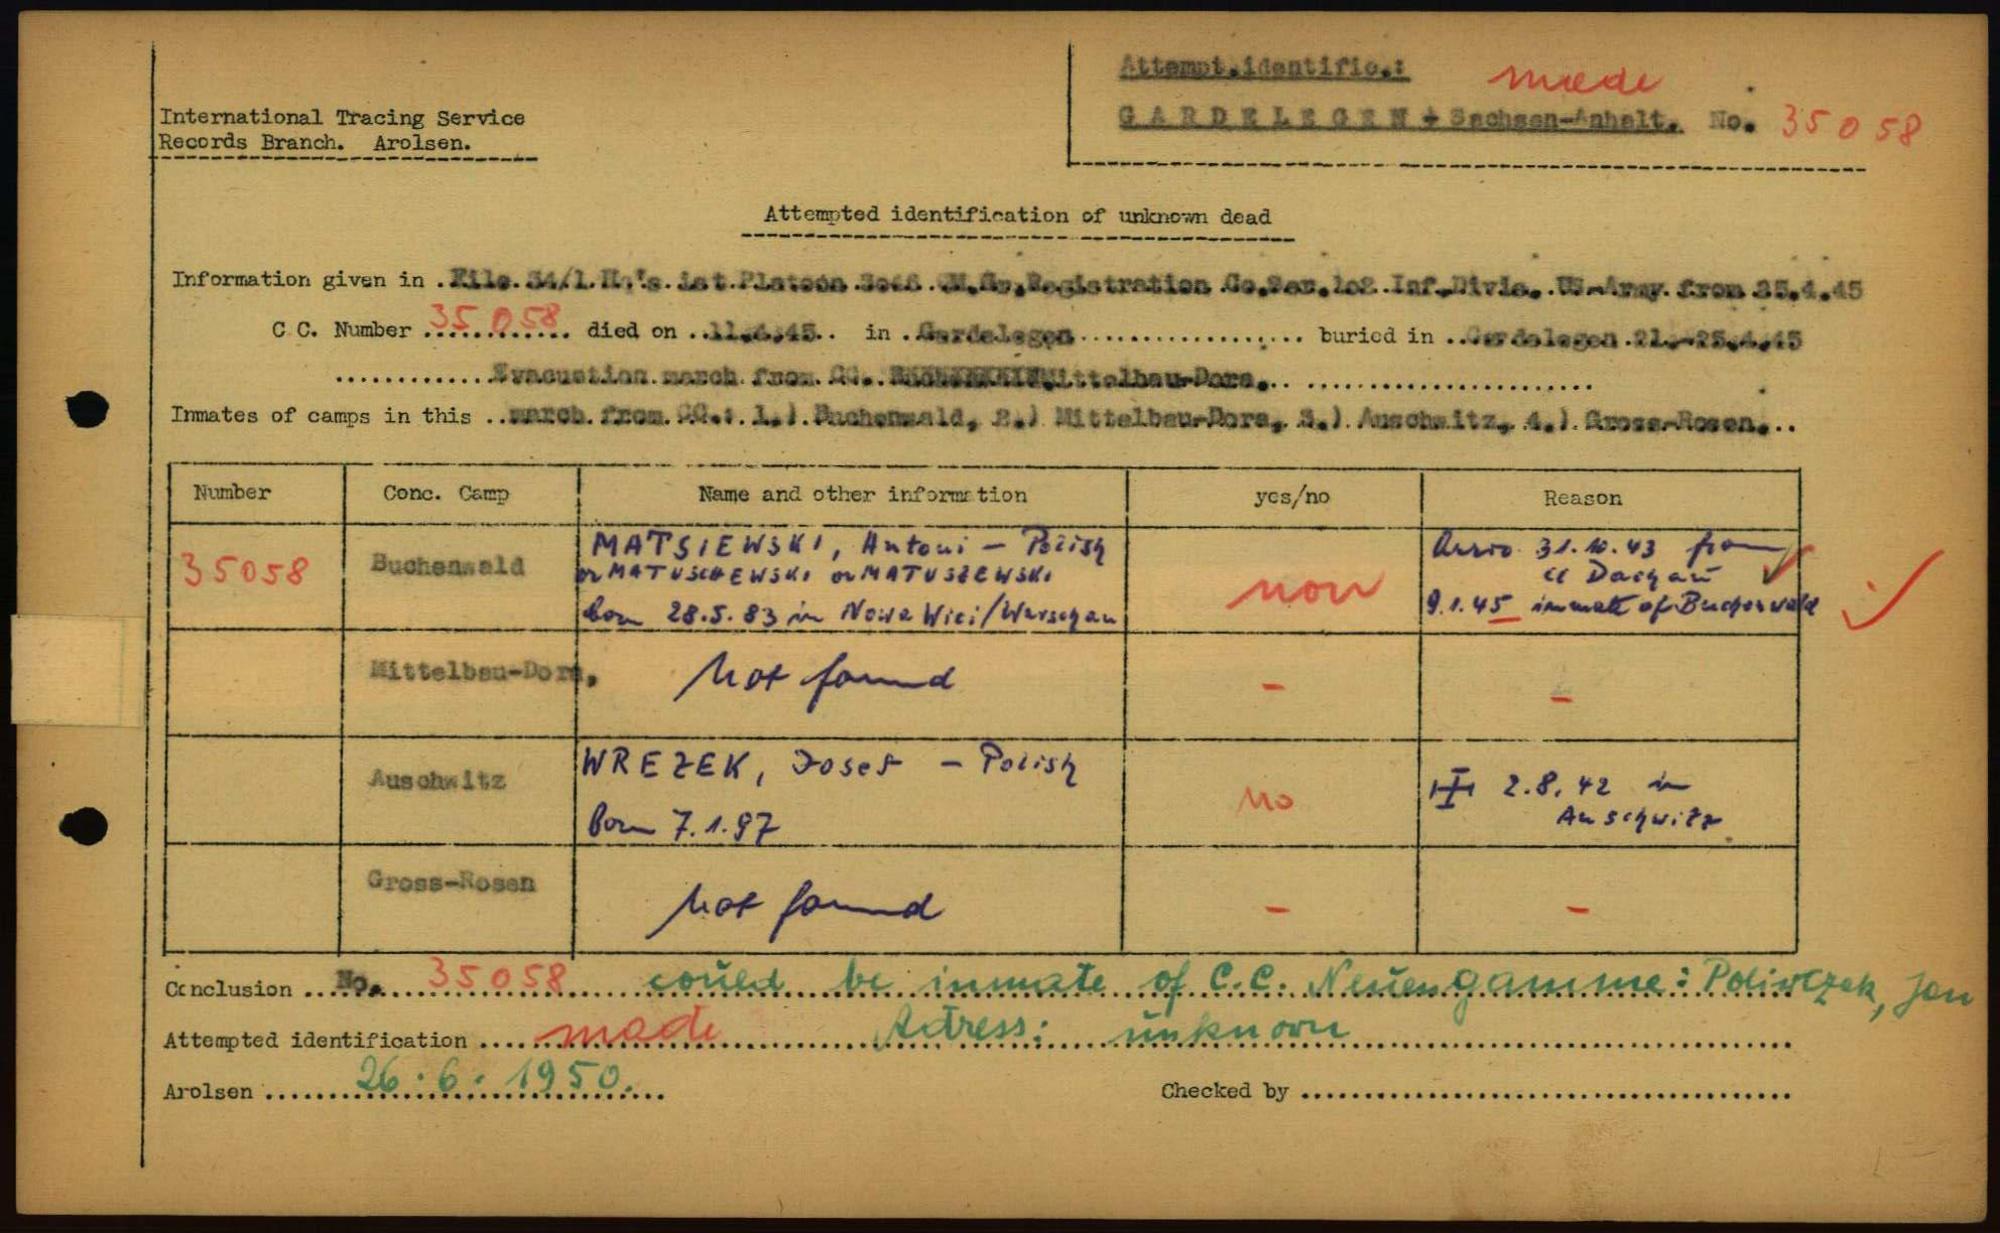 Attempt.identific.: made
GARDELEGEN + Sachsen-Anhalt. No. 35058
International Tracing Service
Records Branch. Arolsen.
Attempted identification of unknown dead
Information given in .File.34/1.Hq's.1st.Platoon.3046.QM.Gr.Registration.Co.Ser.102.Inf.Divis..US-Army.from 25.4.45
C C. Number ..35058.. died on ..11.4.45.. in .Gardelegen.................. buried in ..Gardelegen.21.-25.4.45
............Evacuation.march.from.CC. Mittelbau-Dora... ......................
Inmates of camps in this ..march.from.CC.: 1.).Buchenwald, 2.) Mittelbau-Dora, 3.).Auschwitz, 4.).Gross-Rosen...
Number Conc. Camp Name and other information yes/no Reason
35058 Buchenwald MATSIEWSKI, Antoni - Polish
or MATUSCHEWSKI or MATUSZEWSKI
born 28.5.83 in Nowa Wici/Warschau
non
Arriv. 31.10.43 from
CC Dachau
9.1.45 inmate of Buchenwald
Mittelbau-Dora, Not found - -
Auschwitz WREZEK, Josef - Polish
Born 7.1.97
no
2.8.42 in
Auschwitz
Gross-Rosen Not found - -
Conclusion ...No. 35058 could be inmate of C.C. Neuengamme: Poliwczek, Jan
Attempted identification ..... made Adress: unknown
Arolsen ....... 26.6.1950. Checked by .......................................